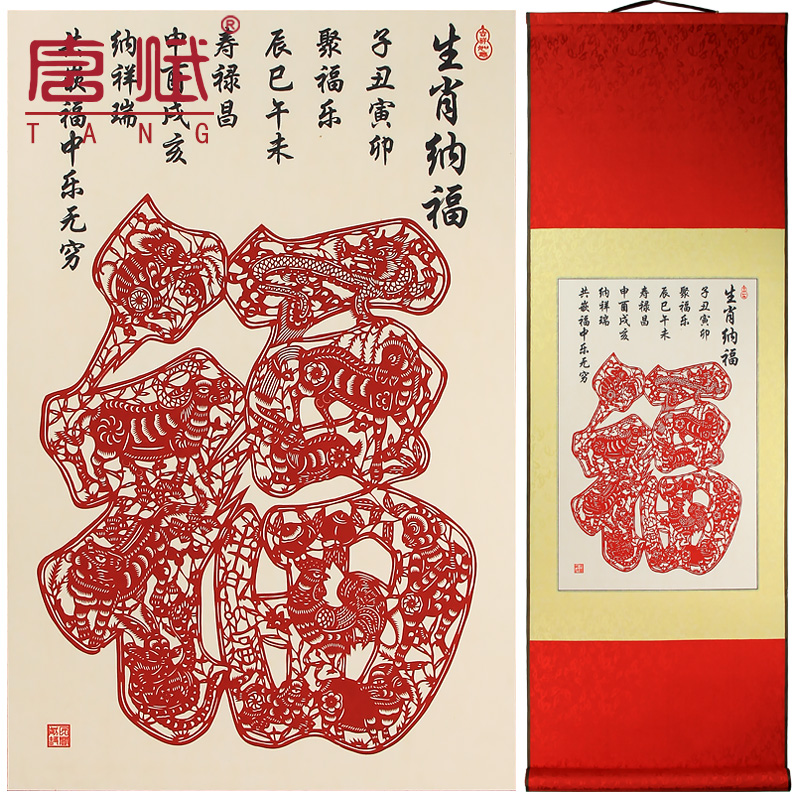 生肖纳福
子丑寅卯
聚福乐
辰巳午未
寿禄昌
申酉戌亥
纳祥瑞
共嵌福中乐无穷
福
唐
®
TANG
生肖纳福
子丑寅卯
聚福乐
辰巳午未
寿禄昌
申酉戌亥
纳祥瑞
共嵌福中乐无穷
福